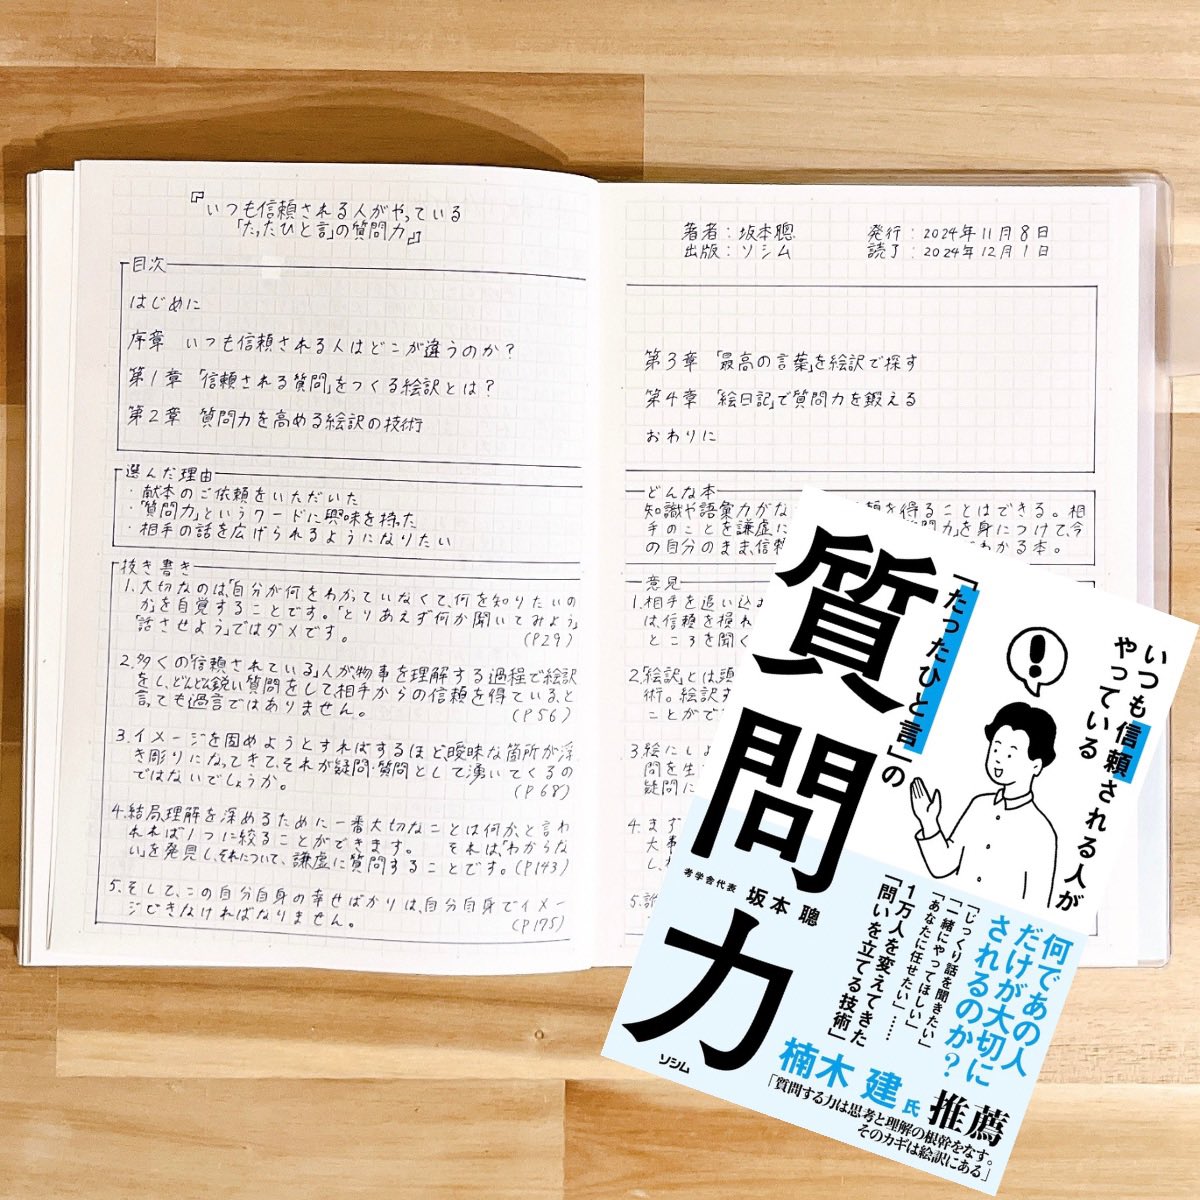 『いつも信頼される人がやっている
「たったひと言」の質問力』
目次
はじめに
序章 いつも信頼される人はどこが違うのか？
第1章 「信頼される質問」をつくる絵訳とは？
第2章 質問力を高める絵訳の技術
選んだ理由
・献本のご依頼をいただいた
・「質問力」というワードに興味を持った
・相手の話を広げられるようになりたい
抜き書き
1.大切なのは、「自分が何をわかっていなくて、何を知りたいの
か」を自覚することです。「とりあえず何か聞いてみよう」
「話させよう」ではダメです。
(P29)
2.多くの「信頼されている」人が物事を理解する過程で絵訳
をし、どんどん鋭い質問をして相手からの信頼を得ている、と
言っても過言ではありません。
(P56)
3.イメージを固めようとすればするほど、曖昧な箇所が浮
き彫りになってきて、それが疑問・質問として湧いてくるの
ではないでしょうか。
(P68)
4.結局、理解を深めるために一番大切なことは何か、と言わ
れれば1つに絞ることができます。 それは、「わからな
い」を発見し、それについて、謙虚に質問することです。(P143)
5.そして、この自分自身の幸せばかりは、自分自身でイメー
ジできなければなりません。
(P175)
著者：坂本聰 発行：2024年11月8日
出版：ソシム 読了：2024年12月1日
第3章 「最高の言葉」を絵訳で探す
第4章 「絵日記」で質問力を鍛える
おわりに
どんな本
知識や語彙力がな を得ることはできる。相
手のことを謙虚に 」を身につけて、今
の自分のまま、信頼 わかる本。
意見
1.相手を追い込
は、信頼を損
ところを聞く
2.「絵訳」とは、頭
術。絵訳す
ことがで
3 絵にしよ
問を生
疑問に
4.まず
大事
し、
5.
いつも信頼される人が
やっている
「たったひと言」の
質問力
考学舎代表 坂本 聰
何であの人
だけが大切に
されるのか？
「じっくり話を聞きたい」
「一緒にやってほしい」
「あなたに任せたい」……
1万人を変えてきた
「問いを立てる技術」
楠木 建氏 推薦
「質問する力は思考と理解の根幹をなす。
そのカギは絵訳にある」
ソシム